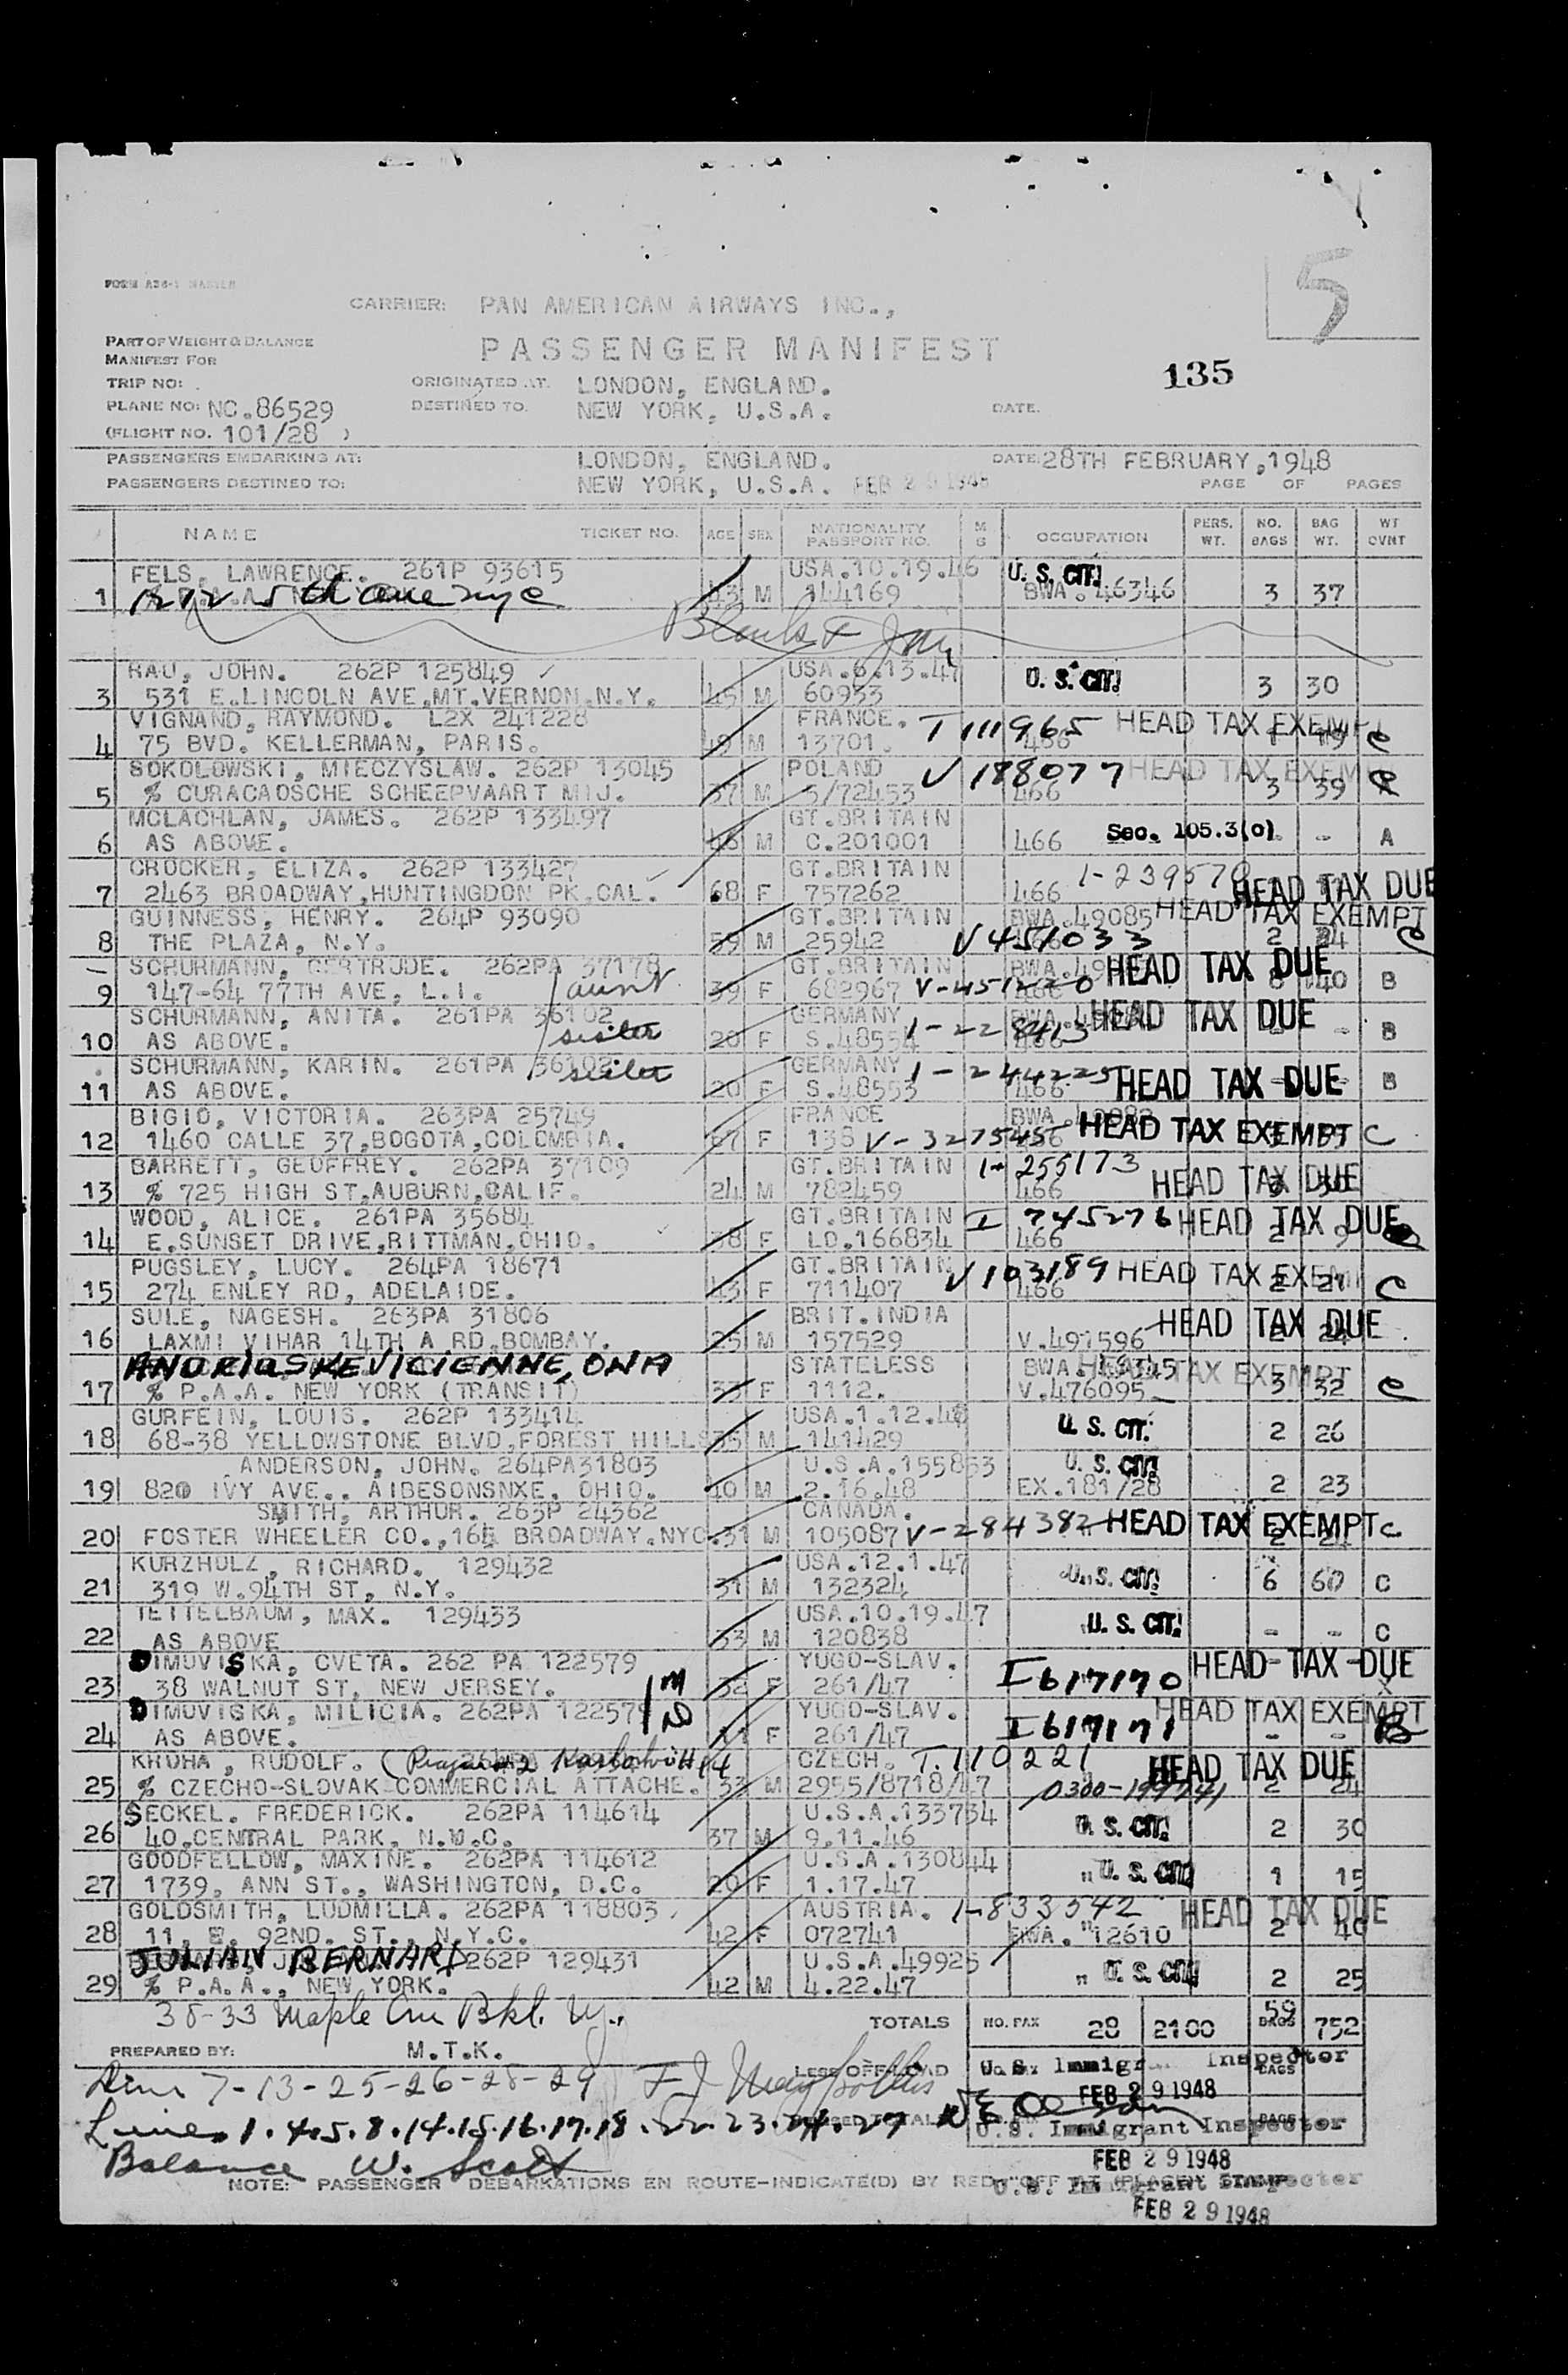 5
FORM A36-1 MASTER
CARRIER: PAN AMERICAN AIRWAYS INC.,
PART OF WEIGHT & BALANCE
MANIFEST FOR
PASSENGER MANIFEST
135
TRIP NO: ORIGINATED AT. LONDON, ENGLAND.
PLANE NO: NC.86529 DESTINED TO. NEW YORK, U.S.A. DATE.
(FLIGHT NO. 101/28 )
PASSENGERS EMBARKING AT: LONDON, ENGLAND. DATE: 28TH FEBRUARY, 1948
PASSENGERS DESTINED TO: NEW YORK, U.S.A. FEB 29 1948 PAGE OF PAGES
NAME TICKET NO. AGE SEX NATIONALITY PASSPORT NO. M G OCCUPATION PERS. WT. NO. BAGS BAG WT. WT CVNT
FELS, LAWRENCE. 261P 93615 USA.10.19.46 U. S. CIT.
1 1212 5th ave nyc 43 M 144169 BWA. 46346 3 37
Blank
RAU, JOHN. 262P 125849 USA.6.13.47 U. S. CIT.
3 531 E.LINCOLN AVE,MT.VERNON,N.Y. 45 M 60933 3 30
VIGNAND, RAYMOND. L2X 241228 FRANCE. T 111965 HEAD TAX EXEMPT
4 75 BVD. KELLERMAN, PARIS. 49 M 13701. 466 1 19 C
SOKOLOWSKI, MIECZYSLAW. 262P 13045 POLAND V 188077 HEAD TAX EXEMPT
5 % CURACAOSCHE SCHEEPVAART MIJ. 37 M 5/72453 466 3 39
MCLACHLAN, JAMES. 262P 133497 GT.BRITAIN
6 AS ABOVE. 46 M C.201001 466 Sec. 105.3(c) - A
CROCKER, ELIZA. 262P 133427 GT.BRITAIN 1-239570
7 2463 BROADWAY,HUNTINGDON PK.CAL. 68 F 757262 466 HEAD TAX DUE
GUINNESS, HENRY. 264P 93090 GT.BRITAIN BWA.49085 HEAD TAX EXEMPT
8 THE PLAZA, N.Y. 59 M 25942 V 451033 2 24 C
SCHURMANN, GERTRUDE. 262PA 37178 GT.BRITAIN HEAD TAX DUE
9 147-64 77TH AVE, L.I. aunt 39 F 682967 V-451220 466 8 140 B
SCHURMANN, ANITA. 261PA 36102 GERMANY HEAD TAX DUE
10 AS ABOVE. sister 20 F S.48554 1-228413 466 - B
SCHURMANN, KARIN. 261PA 36102 GERMANY 1-244225
11 AS ABOVE. sister 20 F S.48553 466 HEAD TAX DUE - B
BIGIO, VICTORIA. 263PA 25749 FRANCE
12 1460 CALLE 37,BOGOTA,COLOMBIA. 67 F 138 V-3275450 HEAD TAX EXEMPT C
BARRETT, GEOFFREY. 262PA 37109 GT.BRITAIN 1-255173
13 % 725 HIGH ST,AUBURN,CALIF. 24 M 782459 466 HEAD TAX DUE
WOOD, ALICE. 261PA 35684 GT.BRITAIN I 745276 HEAD TAX DUE
14 E.SUNSET DRIVE,RITTMAN,OHIO. 38 F LO.166834 466 2 9
PUGSLEY, LUCY. 264PA 18671 GT.BRITAIN V 103189 HEAD TAX EXEMPT
15 274 ENLEY RD, ADELAIDE. 43 F 711407 466 2 27 C
SULE, NAGESH. 263PA 31806 BRIT.INDIA HEAD TAX DUE
16 LAXMI VIHAR 14TH A RD,BOMBAY. 25 M 157529 V.491596
ANDRIUSKEVICIENNE, ONA STATELESS HEAD TAX EXEMPT
17 % P.A.A. NEW YORK (TRANSIT) 33 F 1112. V.476095 3 32 C
GURFEIN, LOUIS. 262P 133414 USA.1.12.48 U. S. CIT.
18 68-38 YELLOWSTONE BLVD,FOREST HILLS 35 M 141429 2 26
ANDERSON, JOHN. 264PA31803 U.S.A.155853 U. S. CIT.
19 820 IVY AVE., AIBESONSNXE, OHIO. 40 M 2.16.48 EX.181/28 2 23
SMITH, ARTHUR. 263P 24362 CANADA.
20 FOSTER WHEELER CO.,165 BROADWAY.NYC. 31 M 105087 V-284382 HEAD TAX EXEMPT C
KURZHOLZ, RICHARD. 129432 USA.12.1.47
21 319 W.94TH ST, N.Y. 31 M 132324 U. S. CIT. 6 60 C
TETTELBAUM, MAX. 129433 USA.10.19.47
22 AS ABOVE 33 M 120838 U. S. CIT. - - C
DIMOVISKA, CVETA. 262 PA 122579 YUGO-SLAV. HEAD TAX DUE
23 38 WALNUT ST, NEW JERSEY. 32 F 261/47 I 617170 X
DIMOVISKA, MILICIA. 262PA 122579 YUGO-SLAV. HEAD TAX EXEMPT
24 AS ABOVE. 11 F 261/47 I 617171 - - B
KHUHA, RUDOLF. CZECH. T.110221 HEAD TAX DUE
25 % CZECHO-SLOVAK COMMERCIAL ATTACHE. 33 M 2955/8718/47 0300-199741 2 24
SECKEL. FREDERICK. 262PA 114614 U.S.A.133734
26 40.CENTRAL PARK, N.Y.C. 37 M 9.11.46 U. S. CIT. 2 30
GOODFELLOW, MAXINE. 262PA 114612 U.S.A.130844
27 1739, ANN ST., WASHINGTON, D.C. 20 F 1.17.47 U. S. CIT. 1 15
GOLDSMITH, LUDMILLA. 262PA 118803 AUSTRIA. 1-833542 HEAD TAX DUE
28 11, E. 92ND. ST., N.Y.C. 42 F 072741 BWA. 12610 2 40
JULIAN BERNARD 262P 129431 U.S.A.49925
29 % P.A.A., NEW YORK. 42 M 4.22.47 U. S. CIT. 2 25
38-33 Maple Ave Bkl. Ny.
TOTALS NO. PAX 28 2100 59 BAGS 752
PREPARED BY: M.T.K.
LESS OFF-LOAD U.S. Immigrant Inspector
7-13-25-26-28-29
FEB 29 1948
Lines 1.4.5.8.14.15.16.17.18.22.23.24.27
U.S. Immigrant Inspector
Balance W. Scott
FEB 29 1948
NOTE: PASSENGER DEBARKATIONS EN ROUTE-INDICATE(D) BY RED "OFF AT (PLACE)" STAMP
U.S. Immigrant Inspector
FEB 29 1948